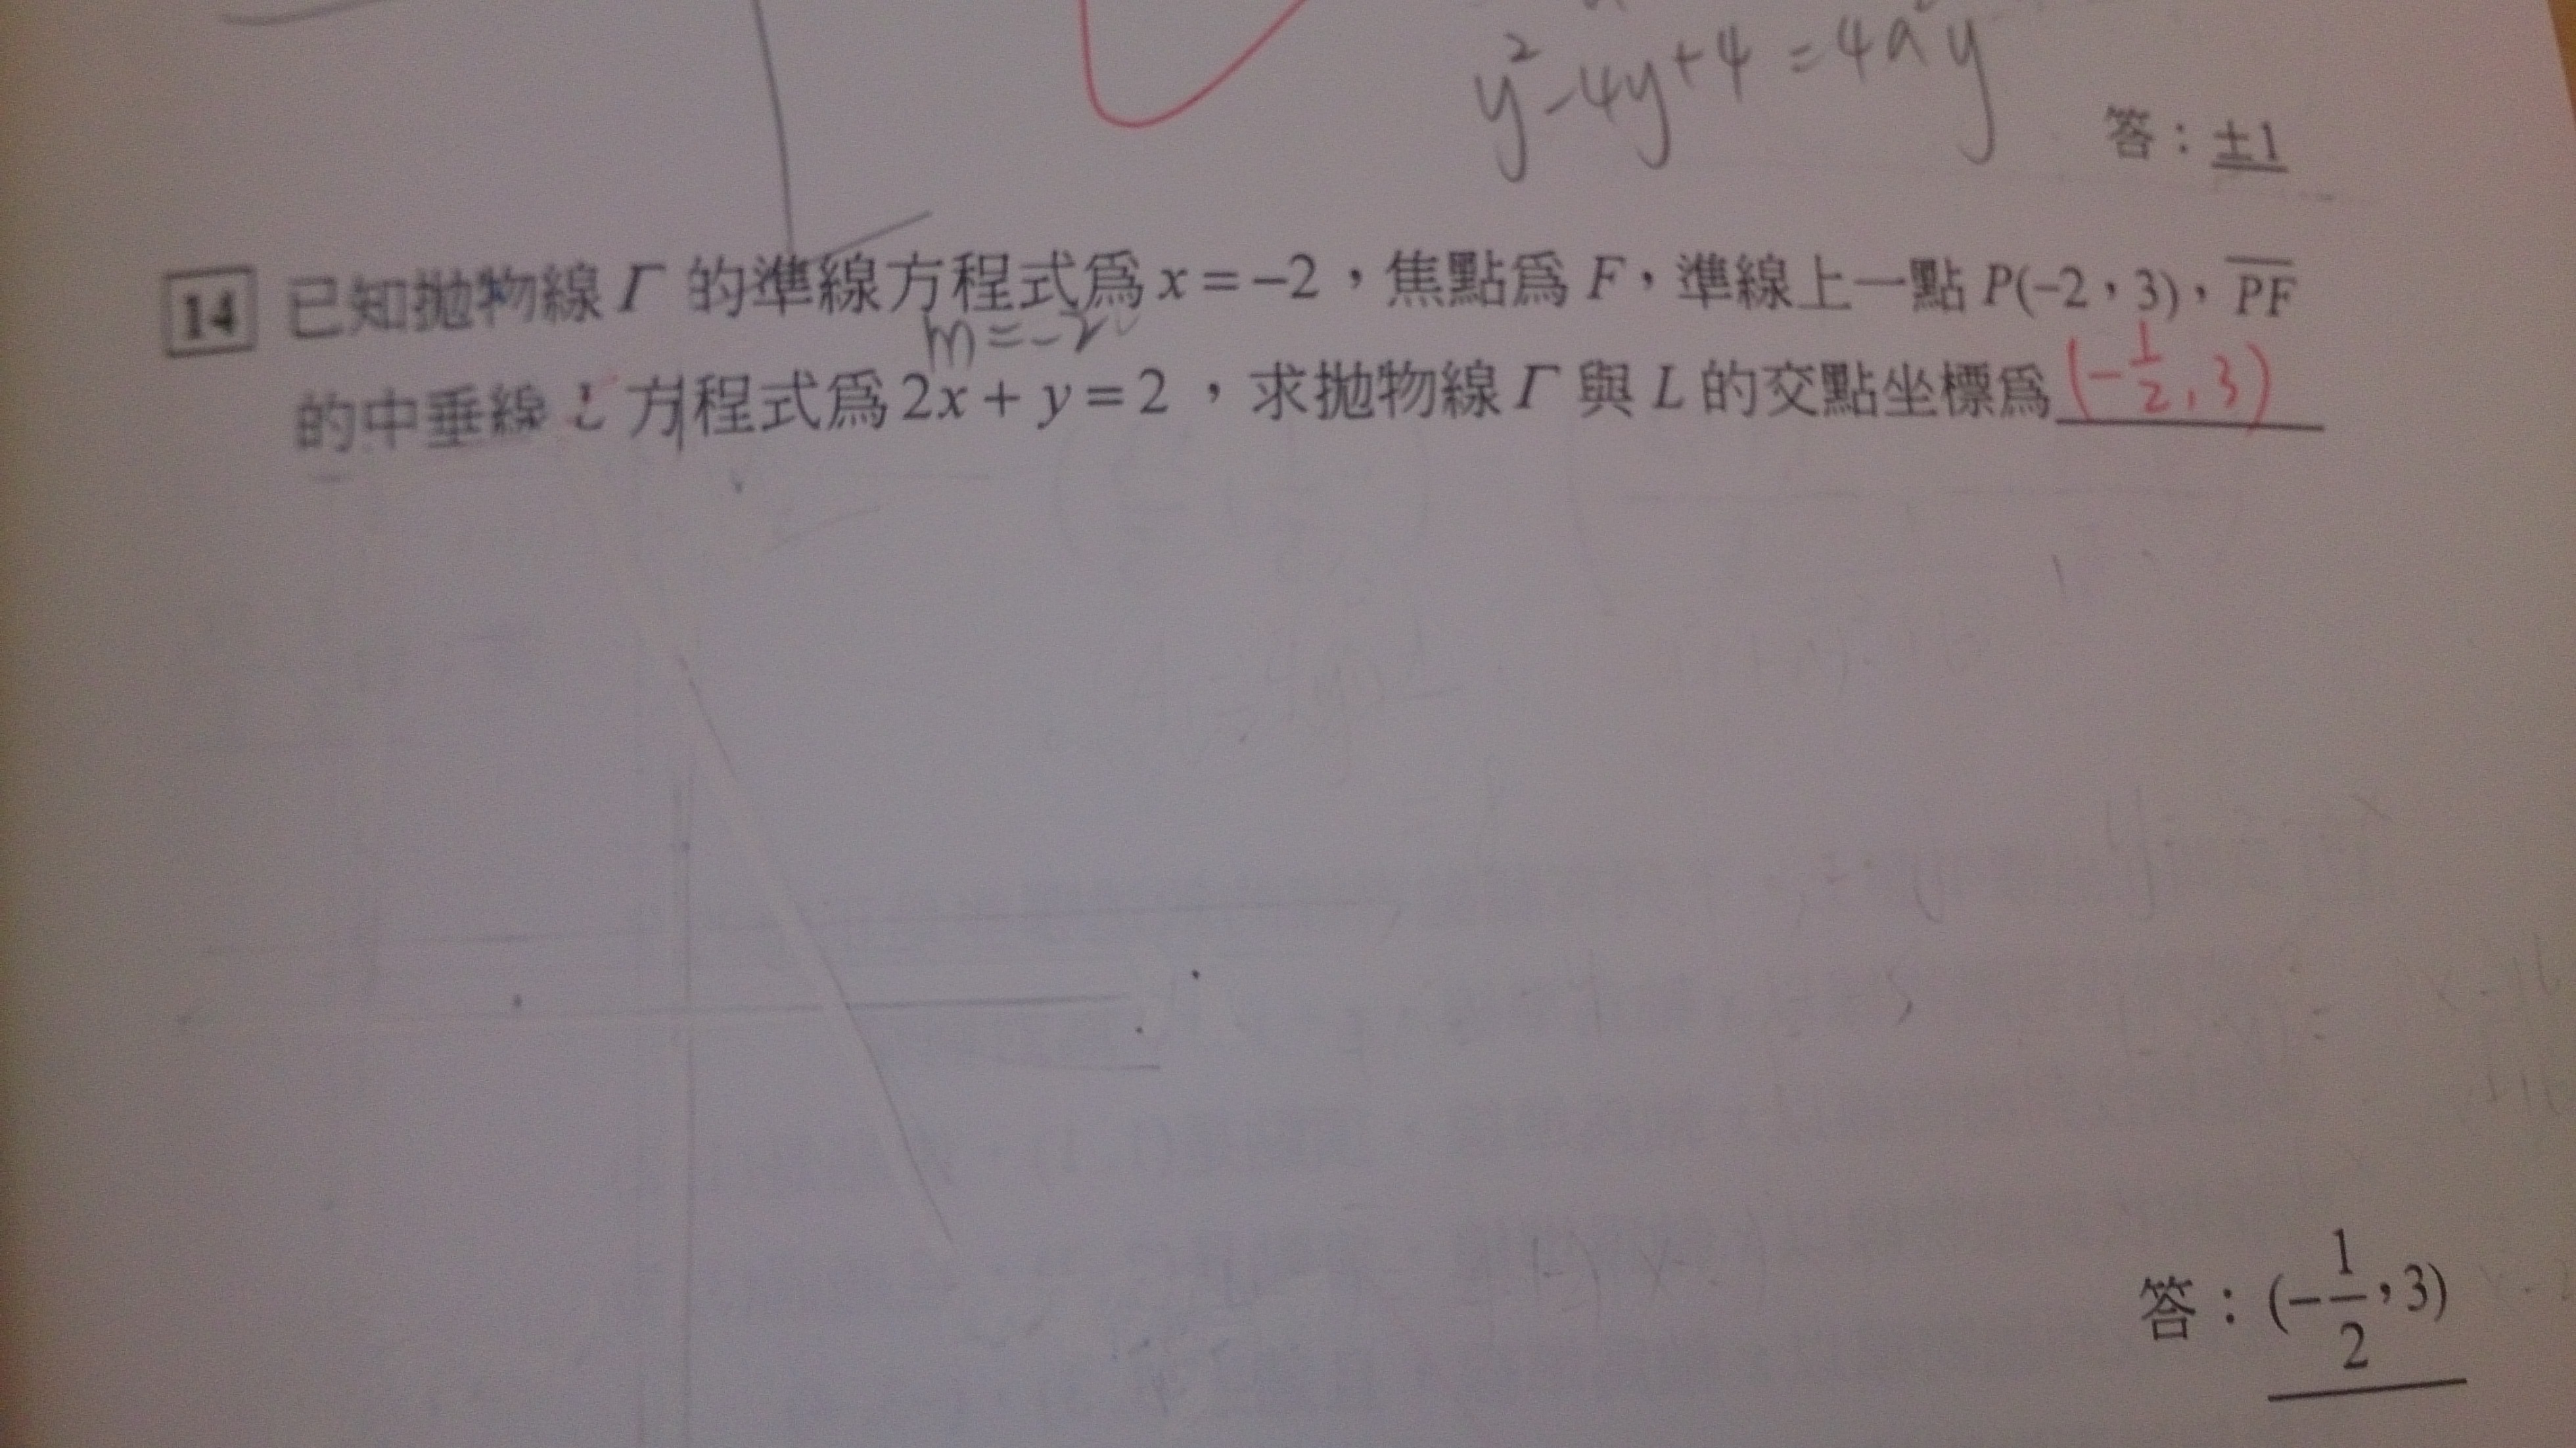 y²-4y+4=4a²y
答：±1
14 已知拋物線 Γ 的準線方程式為 x=-2，焦點為 F，準線上一點 P(-2，3)，PF
m=-2
的中垂線 L 方程式為 2x+y=2，求拋物線 Γ 與 L 的交點坐標為(-1/2, 3)
答：(-1/2，3)